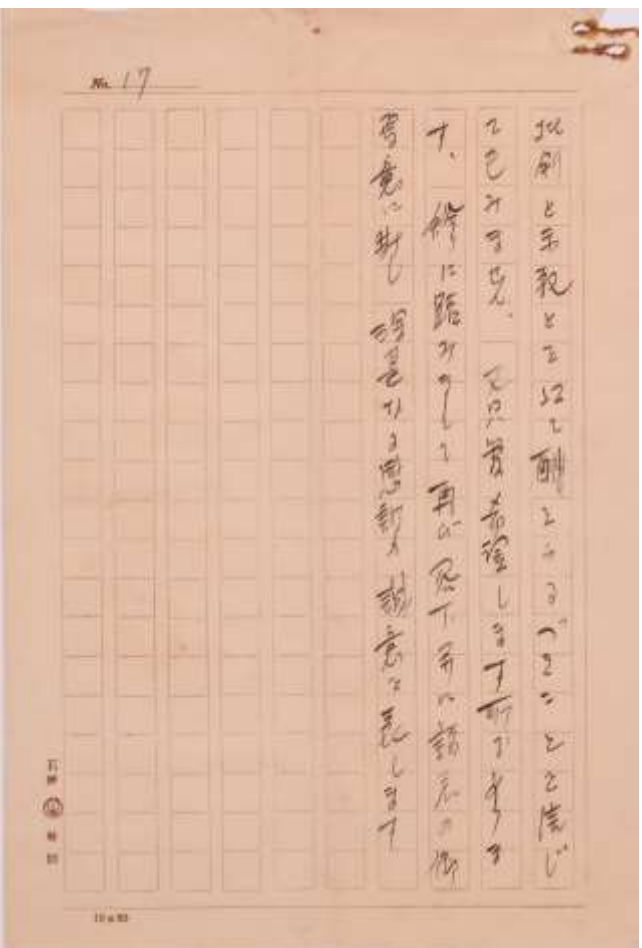 No. 17
批判と示教とを以て酬ゐらるべきことを信じ
てをみません。又只管希望します所であります
す、終りに臨みまして再び閣下並に諸君の御
厚意に対し深甚なる感謝の誠意を表します
10×20